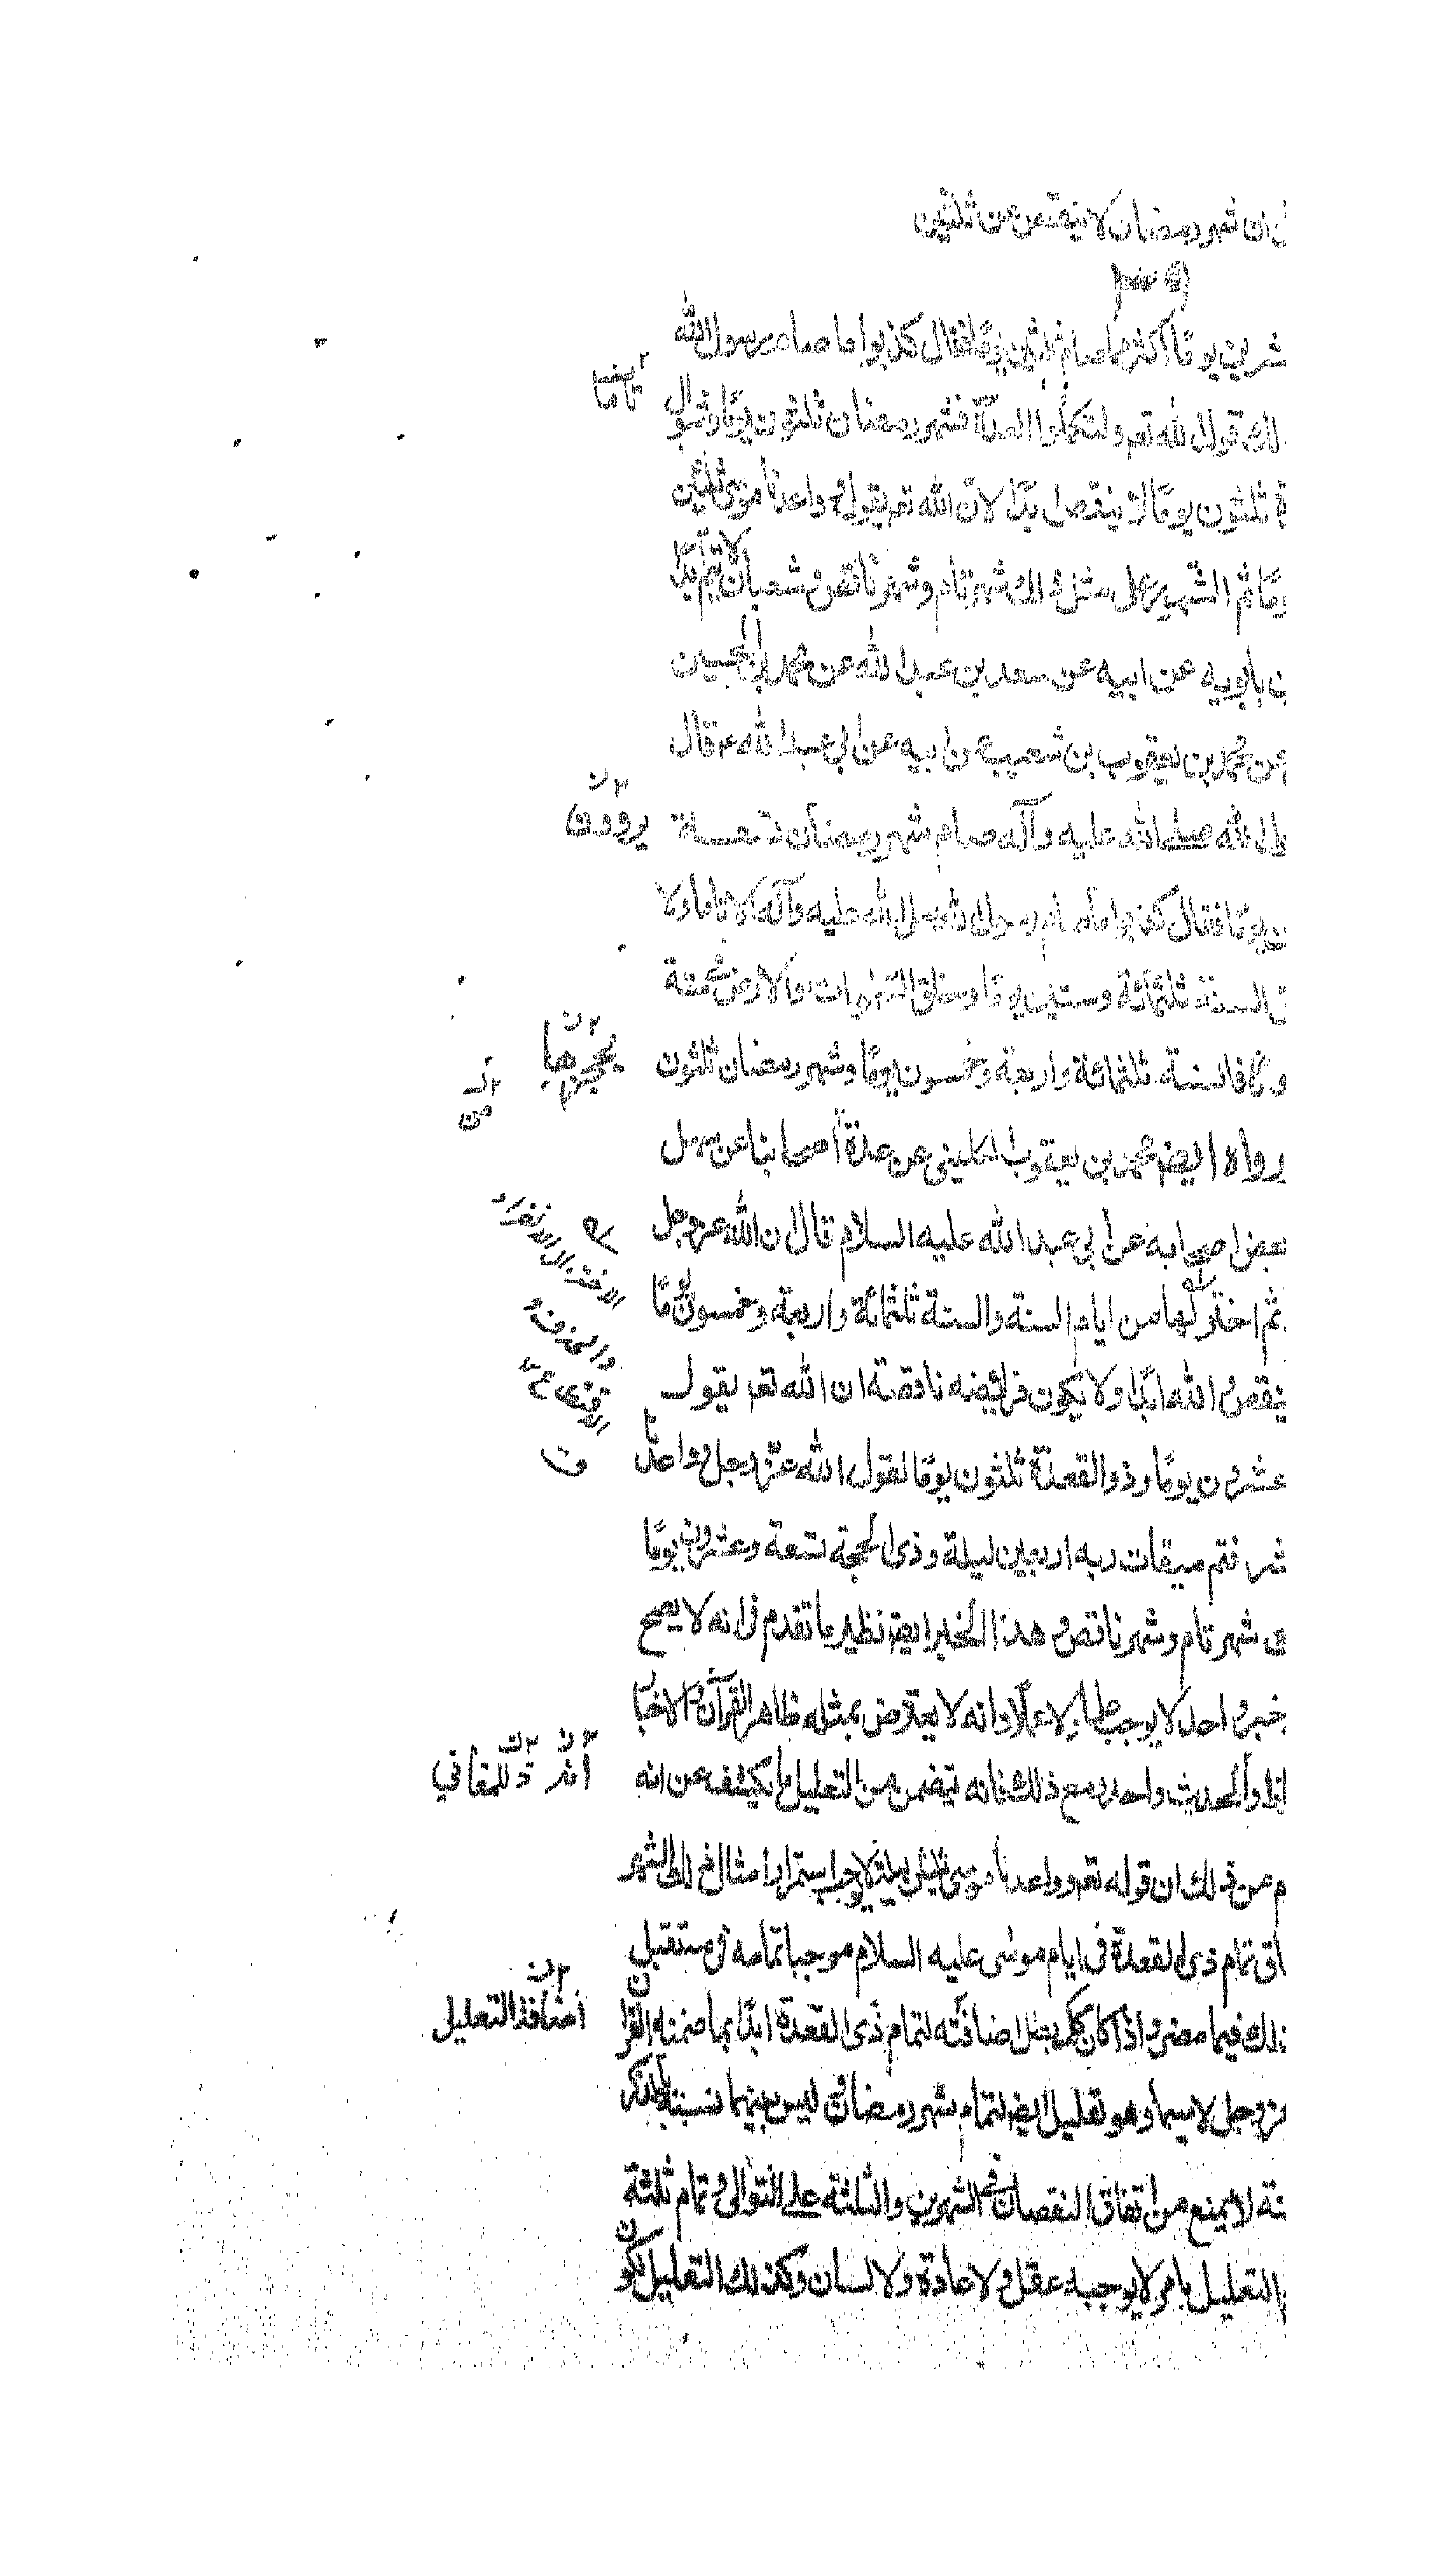 ان شهر رمضان لا ينقص من ثلثين
شرين يوما أكثر مما صام ثلثين يوما فقال كذبوا ما صام رسول الله
تاما
لك قول الله تعم ولتكملوا العدة فشهر رمضان ثلثون يوما وشوال
ة ثلثون يوما لا ينقص ابدا لان الله تعم يقول وواعدنا موسى ثلثين
وما ثم الشهور على مثل ذلك شهر تام وشهر ناقص وشعبان لا يتم ابدا
ن بابويه عن ابيه عن سعد بن عبد الله عن محمد بن الحسين
عن محمد بن يعقوب بن شعيب عن ابيه عن ابي عبد الله ع قال
ول الله صلى الله عليه وآله صام شهر رمضان تسعة
يروون
ن يوما فقال كذبوا ما صام رسول الله صلى الله عليه وآله الا تاما ولا
ق السنة ثلثمائة وستين يوما وخلق السموات والارض في ستة
وما فالسنة ثلثمائة واربعة وخمسون يوما وشهر رمضان ثلثون
يحجزها
من
رواه ايضم محمد بن يعقوب الكليني عن عدة من أصحابنا عن سهل
بعض اصحابه عن ابي عبد الله عليه السلام قال ان الله عز وجل
ثم اختزلها من ايام السنة والسنة ثلثمائة واربعة وخمسون يوما
الاختزال الانفراد
والحذف و
ينقص والله ابدا ولا يكون فرائضه ناقصة ان الله تعم يقول
عشرون يوما وذو القعدة ثلثون يوما لقول الله عز وجل وواعدنا
ق
شر فتم ميقات ربه اربعين ليلة وذي الحجة تسعة وعشرون يوما
ى شهر تام وشهر ناقص وهذا الخبر ايضم نظير ما تقدم في انه لا يصح
خبر واحد لا يوجب علما ولا عملا وانه لا يعترض بمثله ظاهر القرآن والاخبار
اظ والحديث واحد ومع ذلك فانه يتضمن من التعليل ما يكشف عن انه
للمعاني
م من ذلك ان قوله تعم وواعدنا موسى ثلثين ليلة لا يوجب استمرار امثال ذلك الشهر
اق تمام ذي القعدة في ايام موسى عليه السلام موجبا تمامه في مستقبل
ذلك فيما مضى واذا كان كك بطل اضافته لتمام ذي القعدة ابدا بما ضمنه القرآن
اضافة التعليل
عز وجل لا سيما وهو تعليل ايضم لتمام شهر رمضان وليس بينهما نسبة بالذكر
نة لا يمنع من اتفاق النقصان في الشهرين والثلثة على التوالي وتمام ثلثة
التعليل بامر لا يوجبه عقل ولا عادة ولا لسان وكذلك التعليل لكون